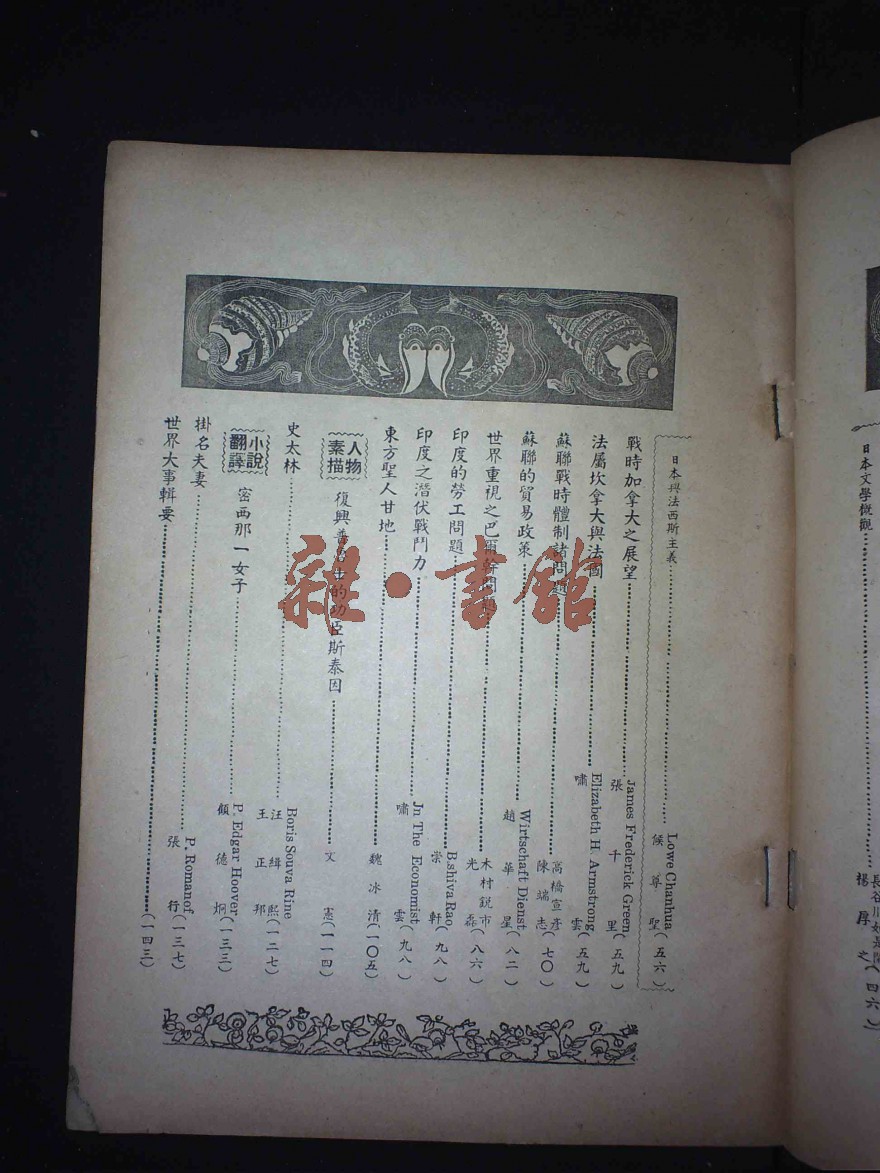 日本文學慨觀
長谷川如是閑
楊厚之(四六)
日本與法西斯主義
Lowe Chanhua
候尊聖(五六)
戰時加拿大之展望
James Frederick Green
張千里(五九)
法屬坎拿大與法國
Elizabeth H. Armstrong
嘯雲(五九)
蘇聯戰時體制諸問題
高橋宣彥
陳端志(七〇)
蘇聯的貿易政策
Wirtschaft Dienst
趙華星(八二)
世界重視之巴爾幹問題
木村銳市
光磊(八六)
印度的勞工問題
B.shiva Rao
崇軒(九八)
印度之潛伏戰鬥力
Jn The Economist
嘯雲(九八)
東方聖人甘地
魏冰清(一〇五)
人物素描
復興普魯士的功臣斯泰因
文憲(一一四)
史太林
Boris Souva Rine
汪緝熙
王正邦(一二七)
小說翻譯
密西那一女子
P. Edgar Hoover
顧德炯(一三三)
掛名夫妻
P. Romanof.
張行(一三七)
世界大事輯要
(一四三)
雜·書館